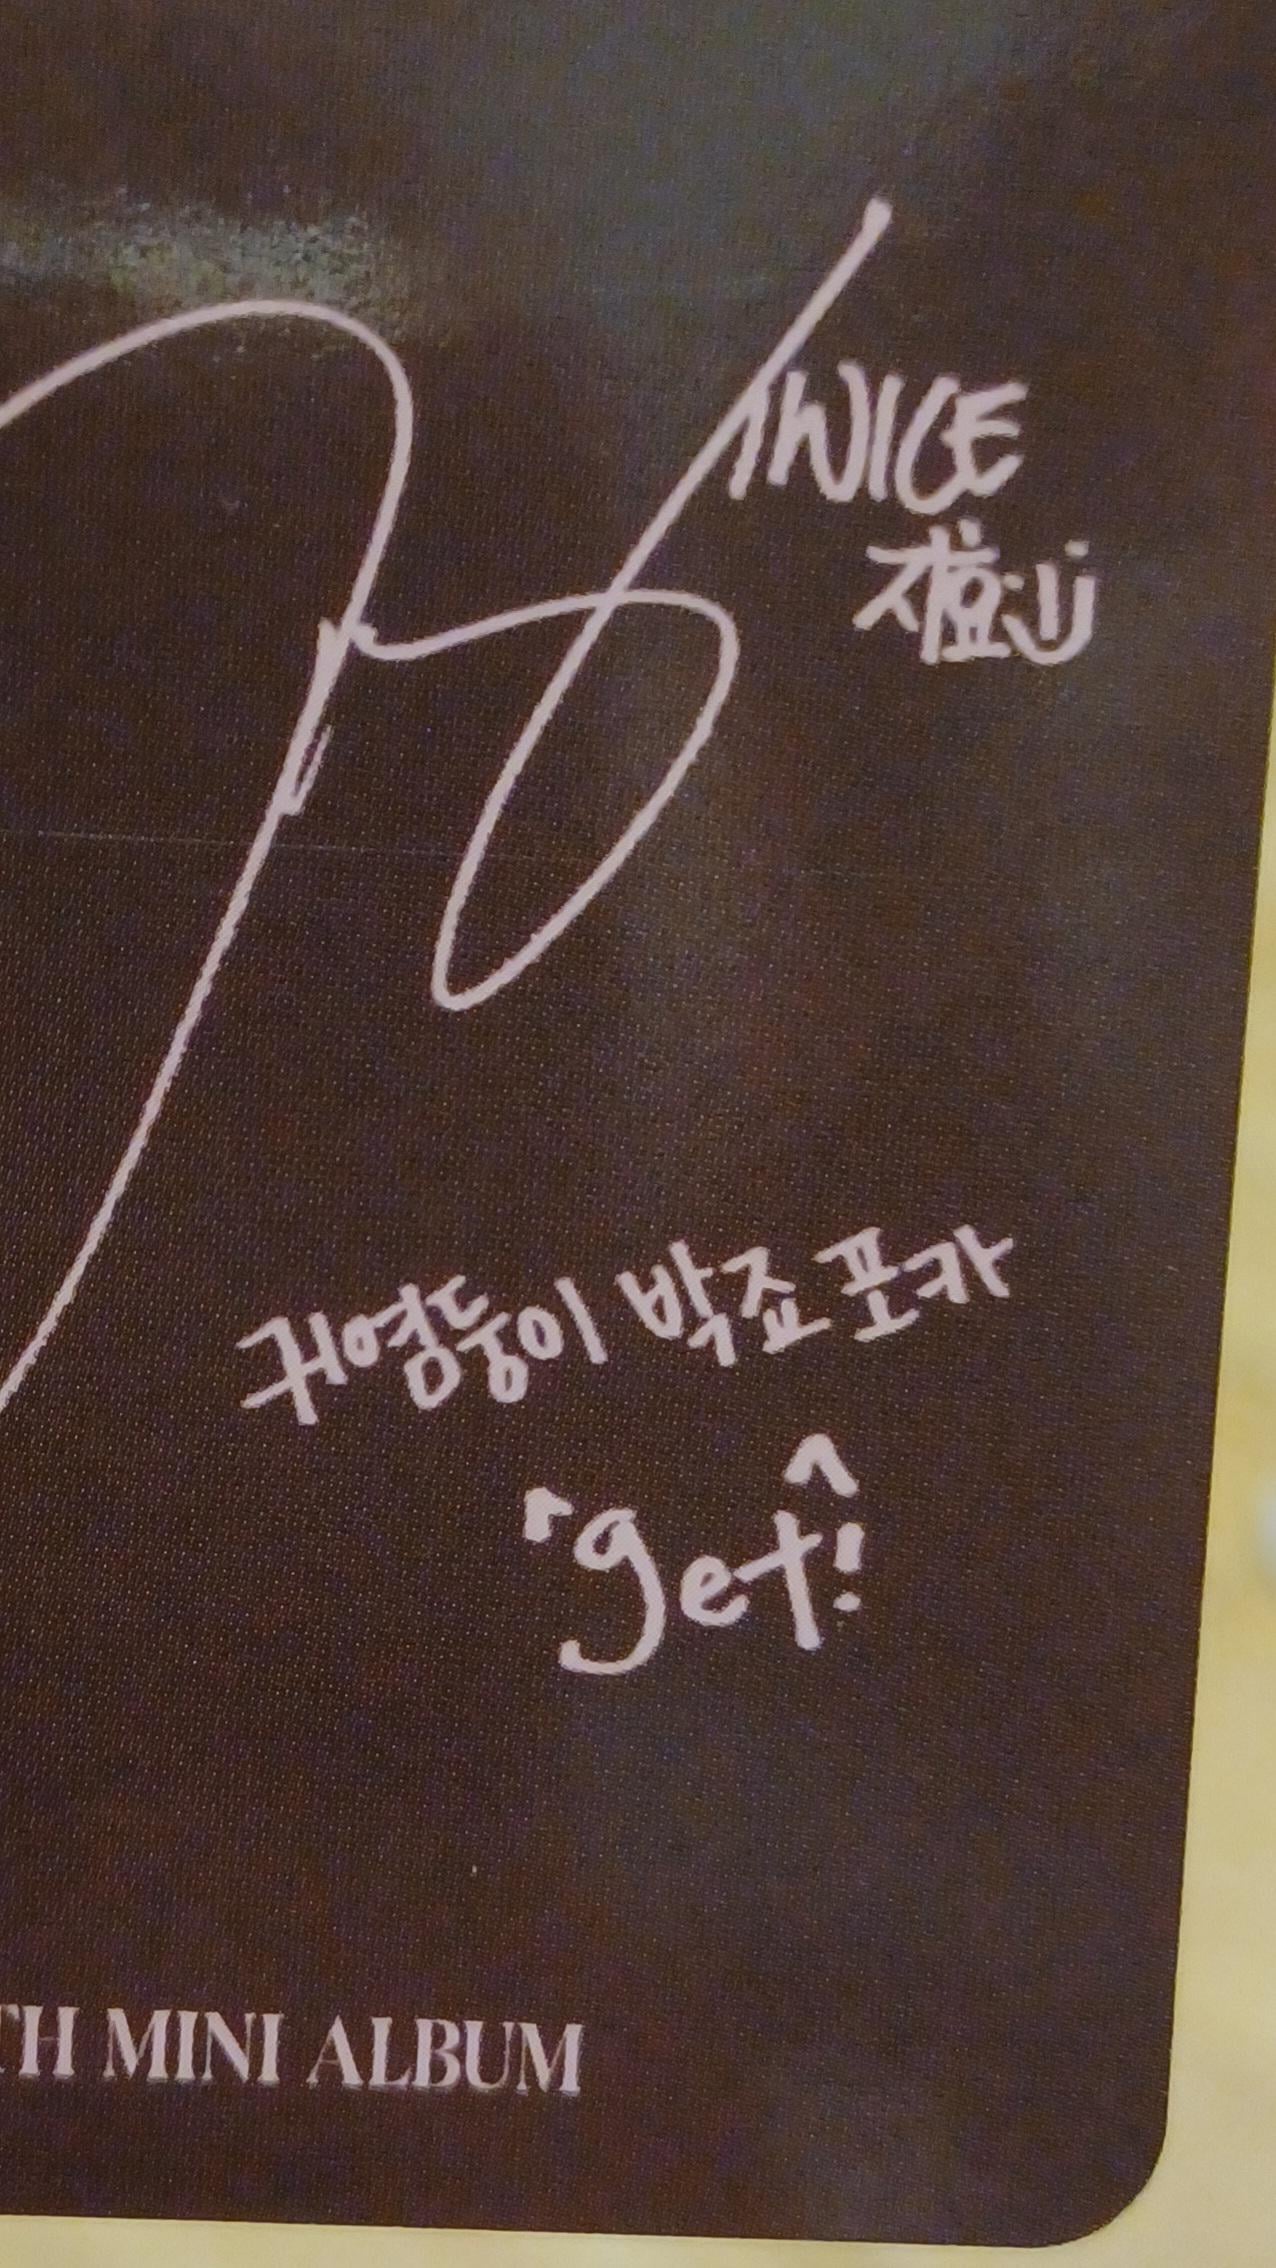 TWICE
지효:)
귀염둥이 박죠 포카
"get!
TH MINI ALBUM